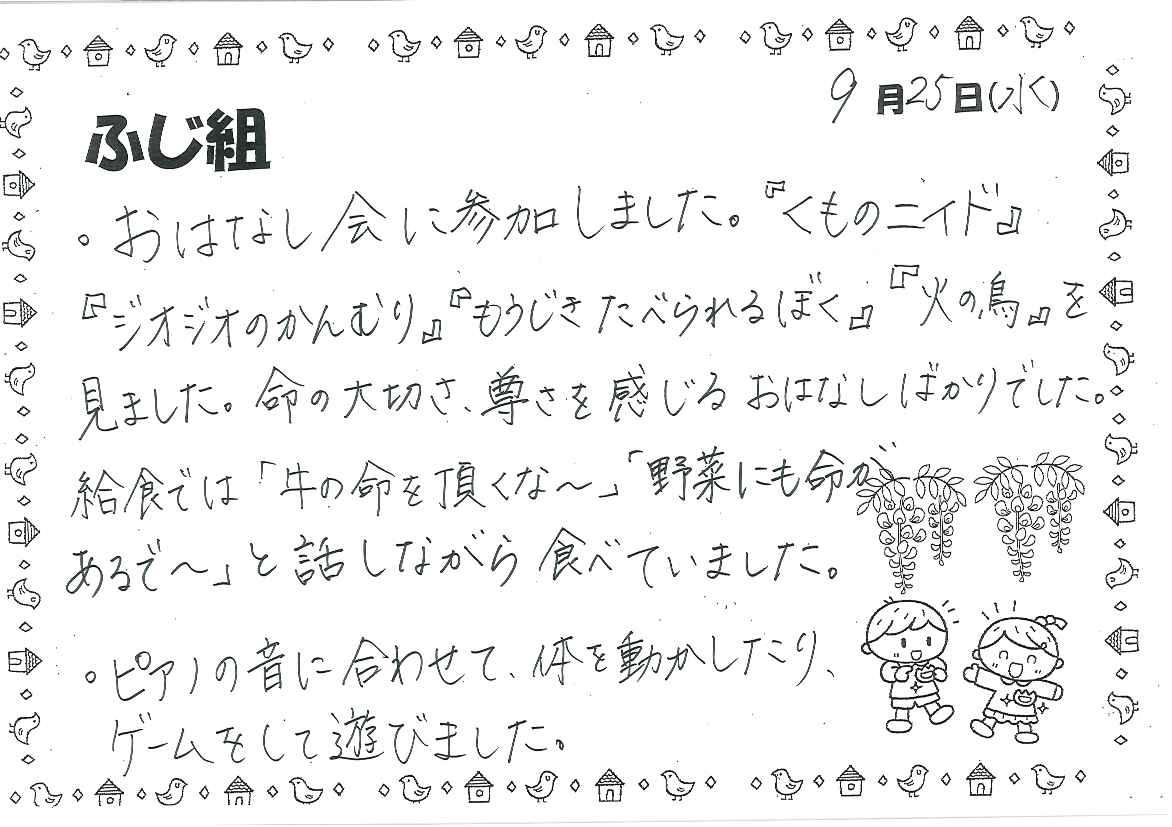 9月25日(水)
ふじ組
。おはなし会に参加しました。『くものニイド』
『ジオジオのかんむり』『もうじきたべられるぼく』『火の鳥』を
見ました。命の大切さ、尊さを感じるおはなしばかりでした。
給食では「牛の命を頂くな〜」「野菜にも命が
あるで〜」と話しながら食べていました。
。ピアノの音に合わせて、体を動かしたり、
ゲームをして遊びました。